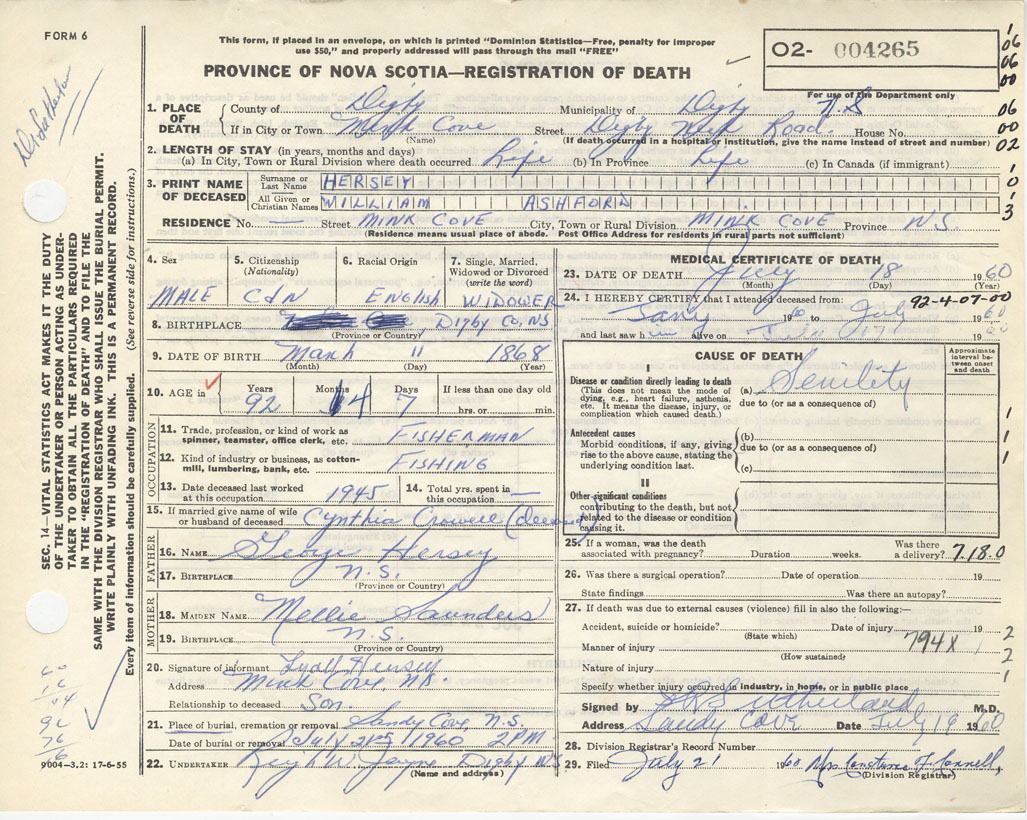 FORM 6
This form, if placed in an envelope, on which is printed "Dominion Statistics—Free, penalty for improper
use $50," and properly addressed will pass through the mail "FREE"
PROVINCE OF NOVA SCOTIA—REGISTRATION OF DEATH
02- 004265
For use of the Department only
1
06
06
00
06
00
02
1
0
1
3
1. PLACE OF DEATH { County of Digby Municipality of Digby N.S
If in City or Town Mink Cove Street Digby Neck Road. House No.
(Name) (If death occurred in a hospital or institution, give the name instead of street and number)
2. LENGTH OF STAY (in years, months and days)
(a) In City, Town or Rural Division where death occurred Life (b) In Province Life (c) In Canada (if immigrant)
3. PRINT NAME OF DECEASED
Surname or Last Name HERSEY
All Given or Christian Names WILLIAM ASHFORD
RESIDENCE No. — Street MINK COVE City, Town or Rural Division MINK COVE Province N.S.
(Residence means usual place of abode. Post Office Address for residents in rural parts not sufficient)
4. Sex
MALE
5. Citizenship
(Nationality)
CDN
6. Racial Origin
English
7. Single, Married,
Widowed or Divorced
(write the word)
WIDOWER
8. BIRTHPLACE Digby Co, NS
(Province or Country)
9. DATE OF BIRTH March 11 1868
(Month) (Day) (Year)
10. AGE in { Years Months Days If less than one day old
92 4 7 hrs. or min.
OCCUPATION
11. Trade, profession, or kind of work as
spinner, teamster, office clerk, etc. FISHERMAN
12. Kind of industry or business, as cotton-
mill, lumbering, bank, etc. FISHING
13. Date deceased last worked
at this occupation 1945
14. Total yrs. spent in
this occupation —
15. If married give name of wife
or husband of deceased Cynthia Crowell (deceased)
FATHER
16. NAME George Hersey
17. BIRTHPLACE N.S.
(Province or Country)
MOTHER
18. MAIDEN NAME Mellie Saunders
19. BIRTHPLACE N.S.
(Province or Country)
20. Signature of informant Lyall Hersey
Address Mink Cove, N.S.
Relationship to deceased Son.
21. Place of burial, cremation or removal Sandy Cove, N.S.
Date of burial or removal July 21st, 1960 2 PM
22. UNDERTAKER W Jayne Digby NS
(Name and address)
MEDICAL CERTIFICATE OF DEATH
23. DATE OF DEATH July 18 1960
(Month) (Day)
24. I HEREBY CERTIFY that I attended deceased from: 92-4-07-00
1960 to July 1960
and last saw h im alive on July 17 1960
CAUSE OF DEATH
Approximate
interval be-
tween onset
and death
I
Disease or condition directly leading to death
(This does not mean the mode of
dying, e.g., heart failure, asthenia,
etc. It means the disease, injury, or
complication which caused death.)
(a) Senility
due to (or as a consequence of)
Antecedent causes
Morbid conditions, if any, giving
rise to the above cause, stating the
underlying condition last.
(b)
due to (or as a consequence of)
(c)
II
Other significant conditions
contributing to the death, but not
related to the disease or condition
causing it.
1
1
1
25. If a woman, was the death
associated with pregnancy? Duration weeks. Was there
a delivery? 7.18.0
26. Was there a surgical operation? Date of operation 19
State findings Was there an autopsy?
27. If death was due to external causes (violence) fill in also the following:—
Accident, suicide or homicide? Date of injury 19
(State which)
Manner of injury 794X
(How sustained)
Nature of injury
2
2
1
Specify whether injury occurred in industry, in home, or in public place
Signed by Sutherland M.D.
Address Sandy Cove Date July 19 1960
28. Division Registrar's Record Number
29. Filed July 21 1960 Mrs Constance F. Connell,
(Division Registrar)
SEC. 14—VITAL STATISTICS ACT MAKES IT THE DUTY
OF THE UNDERTAKER OR PERSON ACTING AS UNDER-
TAKER TO OBTAIN ALL THE PARTICULARS REQUIRED
IN THE "REGISTRATION OF DEATH" AND TO FILE THE
SAME WITH THE DIVISION REGISTRAR WHO SHALL ISSUE THE BURIAL PERMIT.
WRITE PLAINLY WITH UNFADING INK. THIS IS A PERMANENT RECORD.
Every item of information should be carefully supplied. (See reverse side for instructions.)
60
16
44
92
76
16
9004-3.2: 17-6-55